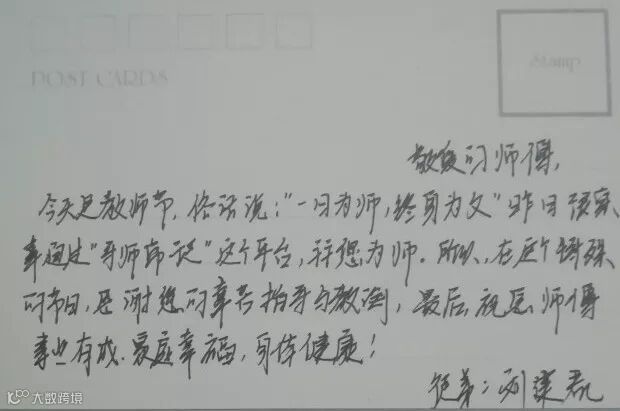 POST CARDS
Stamp
敬爱的师傅,
今天是教师节,俗话说:"一日为师,终身为父"昨日很荣
幸通过"导师带徒"这个平台,拜您为师。所以,在这个特殊
的节日,感谢您的辛苦指导与教诲,最后祝愿师傅
事业有成、家庭幸福,身体健康!
徒弟:刘建
大数跨境